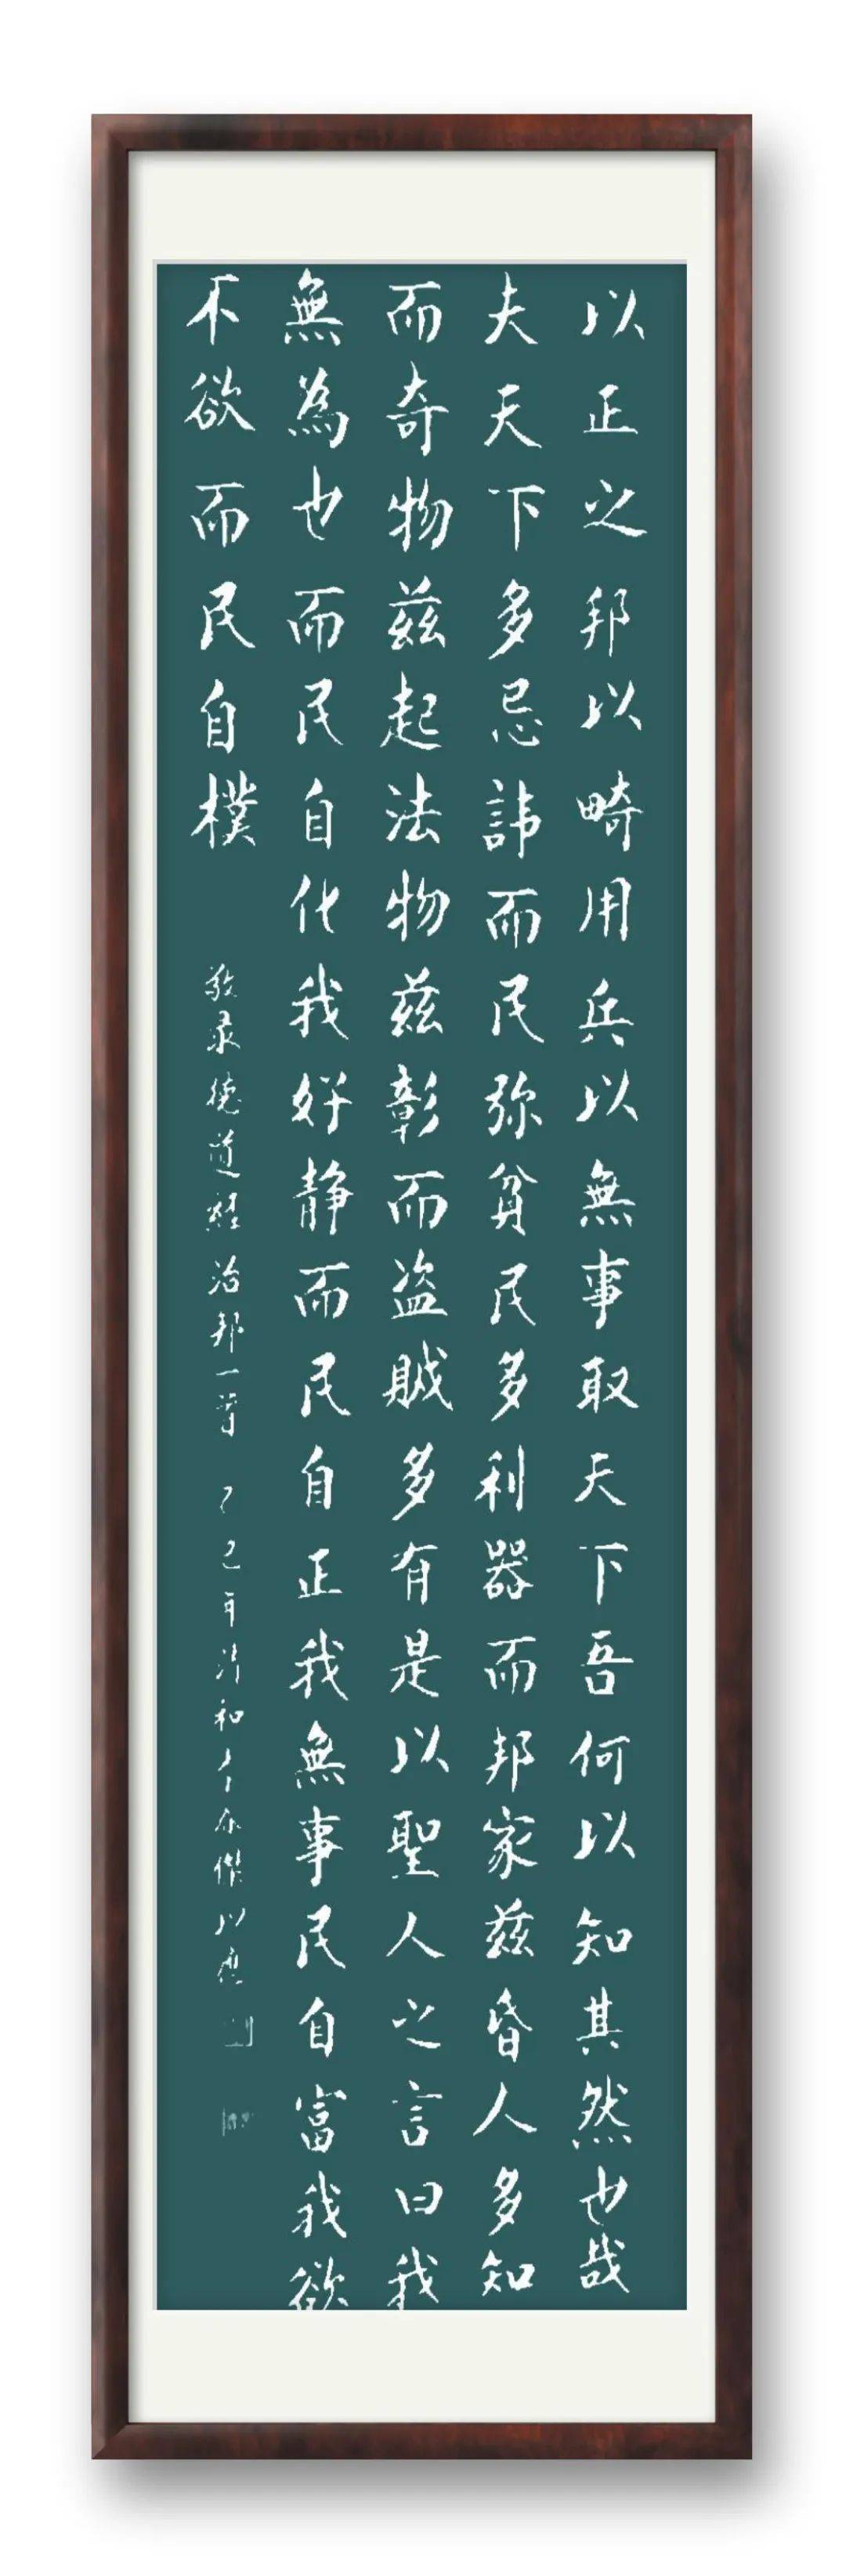 以正之邦以畸用兵以無事取天下吾何以知其然也哉
夫天下多忌諱而民弥貧民多利器而邦家茲昏人多知
而奇物茲起法物茲彰而盗賊多有是以聖人之言曰我
無為也而民自化我好静而民自正我無事民自富我欲
不欲而民自樸
敬录德道經治邦一首 乙巳年清和